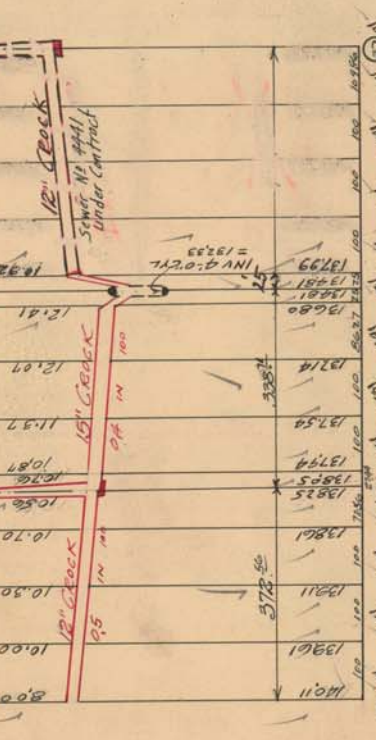 12" CROCK
Sewer No 4441
under Contract
INV 4'-0" CYL
= 132.33
25
15" CROCK
0.4 IN 100
338
12" CROCK
0.5 IN 100
372.56
12.41
12.07
11.37
10.87
10.76
10.56
10.70
10.50
10.00
8.00
137.99
134.81
134.81
136.80
137.14
137.54
137.94
138.05
138.25
138.61
139.11
139.61
140.11
100
100
100
100
100
100
100
100
100